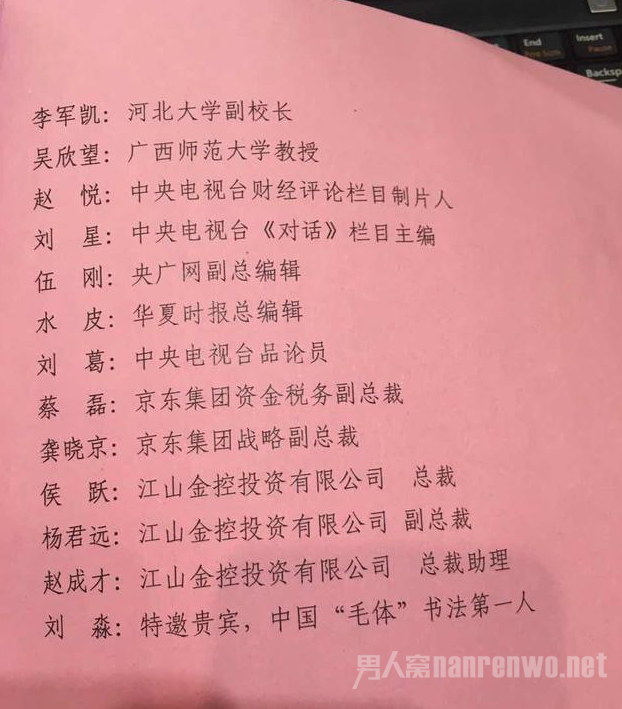 End
Insert
Pause
Backsp
李军凯：河北大学副校长
吴欣望：广西师范大学教授
赵　悦：中央电视台财经评论栏目制片人
刘　星：中央电视台《对话》栏目主编
伍　刚：央广网副总编辑
水　皮：华夏时报总编辑
刘　葛：中央电视台品论员
蔡　磊：京东集团资金税务副总裁
龚晓京：京东集团战略副总裁
侯　跃：江山金控投资有限公司　总裁
杨君远：江山金控投资有限公司 副总裁
赵成才：江山金控投资有限公司　总裁助理
刘　淼：特邀贵宾，中国“毛体”书法第一人
男人窝nanrenwo.net